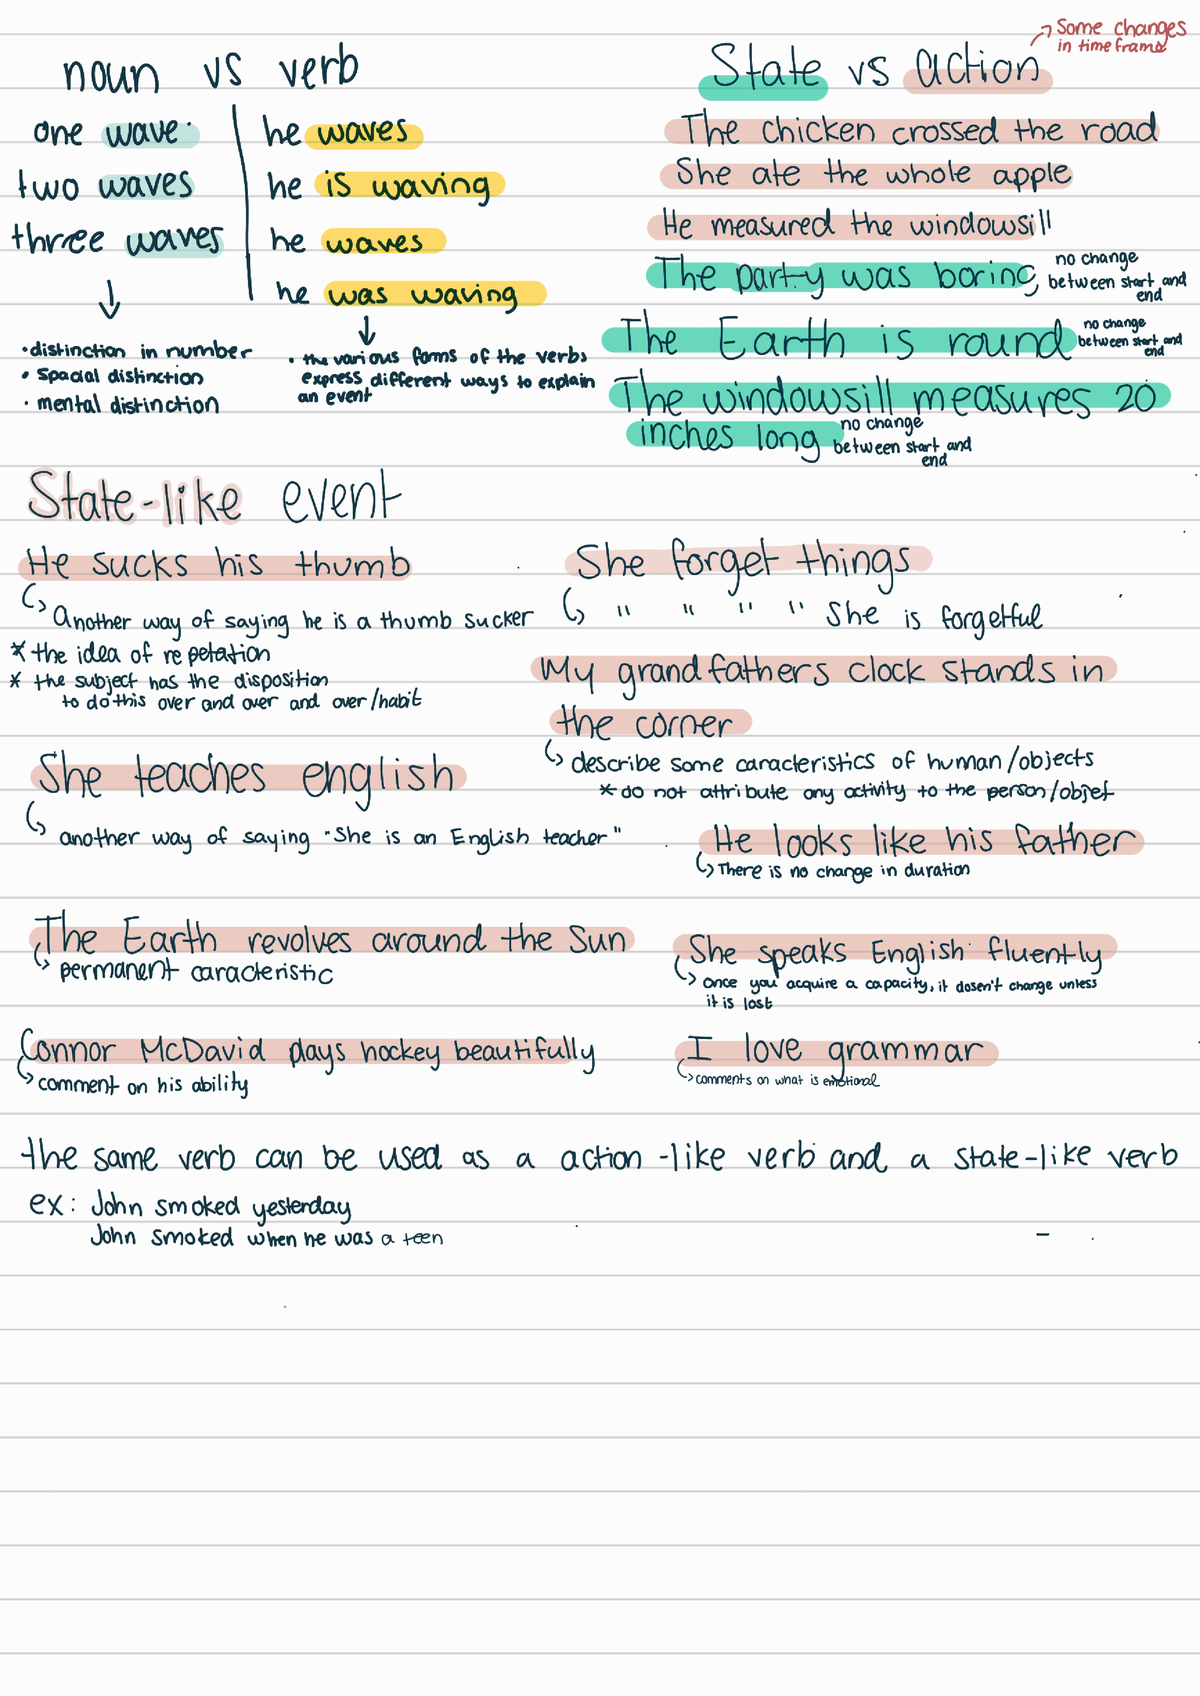 noun vs verb
one wave
two waves
three waves
↓
•distinction in number
• Spacial distinction
• mental distinction
he waves
he is waving
he waves
he was waving
↓
• the various forms of the verbs
express different ways to explain
an event
State vs action
→ Some changes
in time frame
The chicken crossed the road
She ate the whole apple
He measured the windowsill
The party was boring
no change
between start and
end
The Earth is round
no change
between start and
end
The windowsill measures 20
inches long
no change
between start and
end
State-like event
He sucks his thumb
↳ Another way of saying he is a thumb sucker
* the idea of repetation
* the subject has the disposition
to do this over and over and over/habit
She teaches english
↳ another way of saying "She is an English teacher"
The Earth revolves around the Sun
↳ permanent caracteristic
Connor McDavid plays hockey beautifully
↳ comment on his ability
She forget things
↳ " " " " She is forgetful
My grandfathers clock stands in
the corner
↳ describe some caracteristics of human/objects
* do not attribute any activity to the person/objet
He looks like his father
↳ There is no change in duration
She speaks English fluently
↳ once you acquire a capacity, it dosen't change unless
it is lost
I love grammar
↳ comments on what is emotional
the same verb can be used as a action-like verb and a state-like verb
ex: John smoked yesterday
John smoked when he was a teen